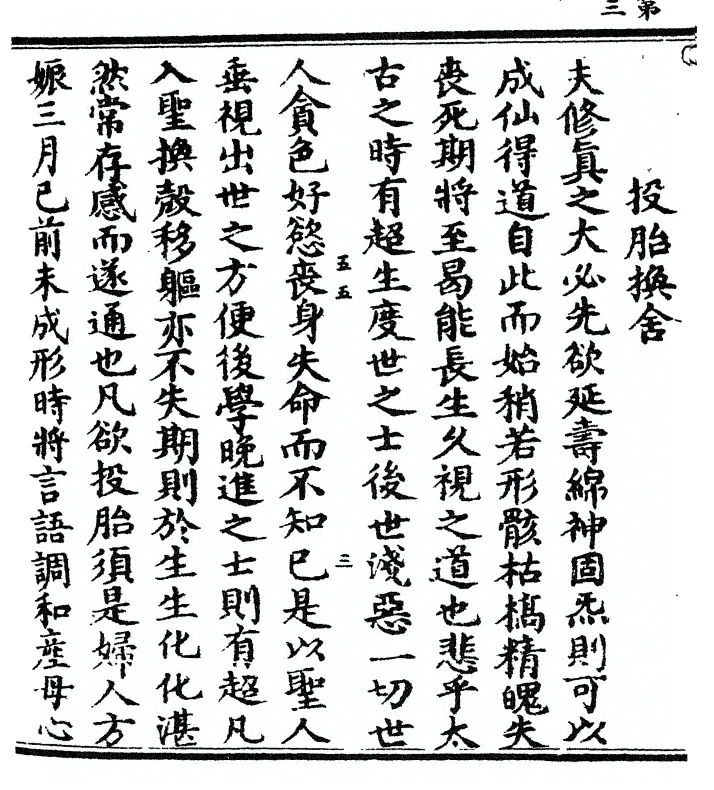 第三
投胎換舍
夫修真之大必先欲延壽綿神固炁則可以
成仙得道自此而始稍若形骸枯槁精魄失
喪死期將至曷能長生久視之道也悲乎太
古之時有超生度世之士後世淺惡一切世
人貪色好慾喪身失命而不知已是以聖人
垂視出世之方便後學晚進之士則有超凡
入聖換殼移軀亦不失期則於生生化化湛
然常存感而遂通也凡欲投胎須是婦人方
娠三月已前未成形時將言語調和產母心
五五
三